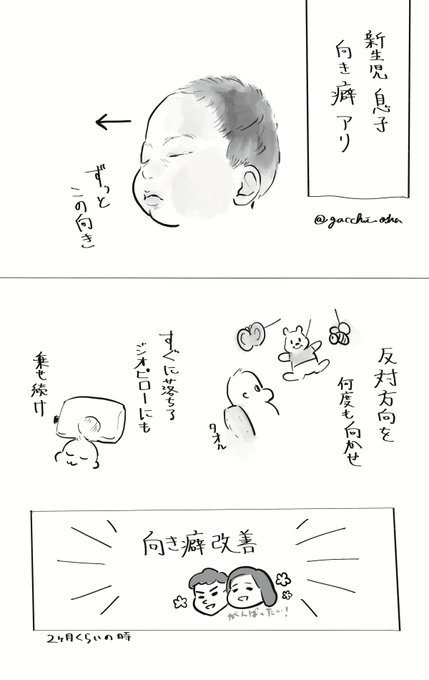 新生児 息子
向き癖 アリ
@gacchi_oshu
ずっと
この向き
反対方向を
何度も向かせ
タオル
すぐに落ちる
ジオピローにも
乗せ続け
向き癖改善
がんばったぃ!
2ヶ月くらいの時